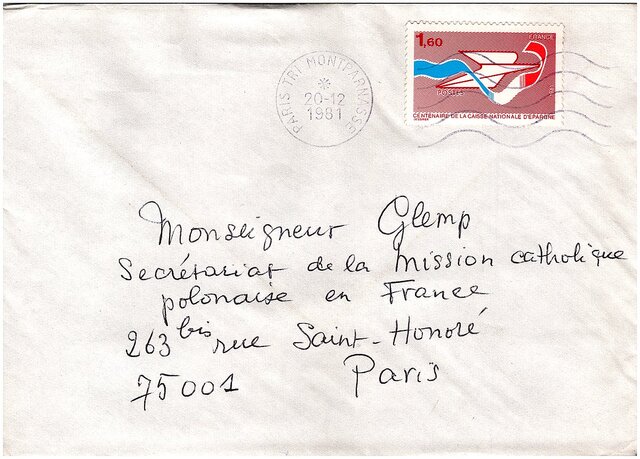 1,60
FRANCE
POSTES
CENTENAIRE DE LA CAISSE NATIONALE D'EPARGNE
PARIS TRI MONTPARNASSE
20-12
1981
Monseigneur Glemp
Secrétariat de la mission catholique
polonaise en France
263 bis rue Saint-Honoré
75001 Paris